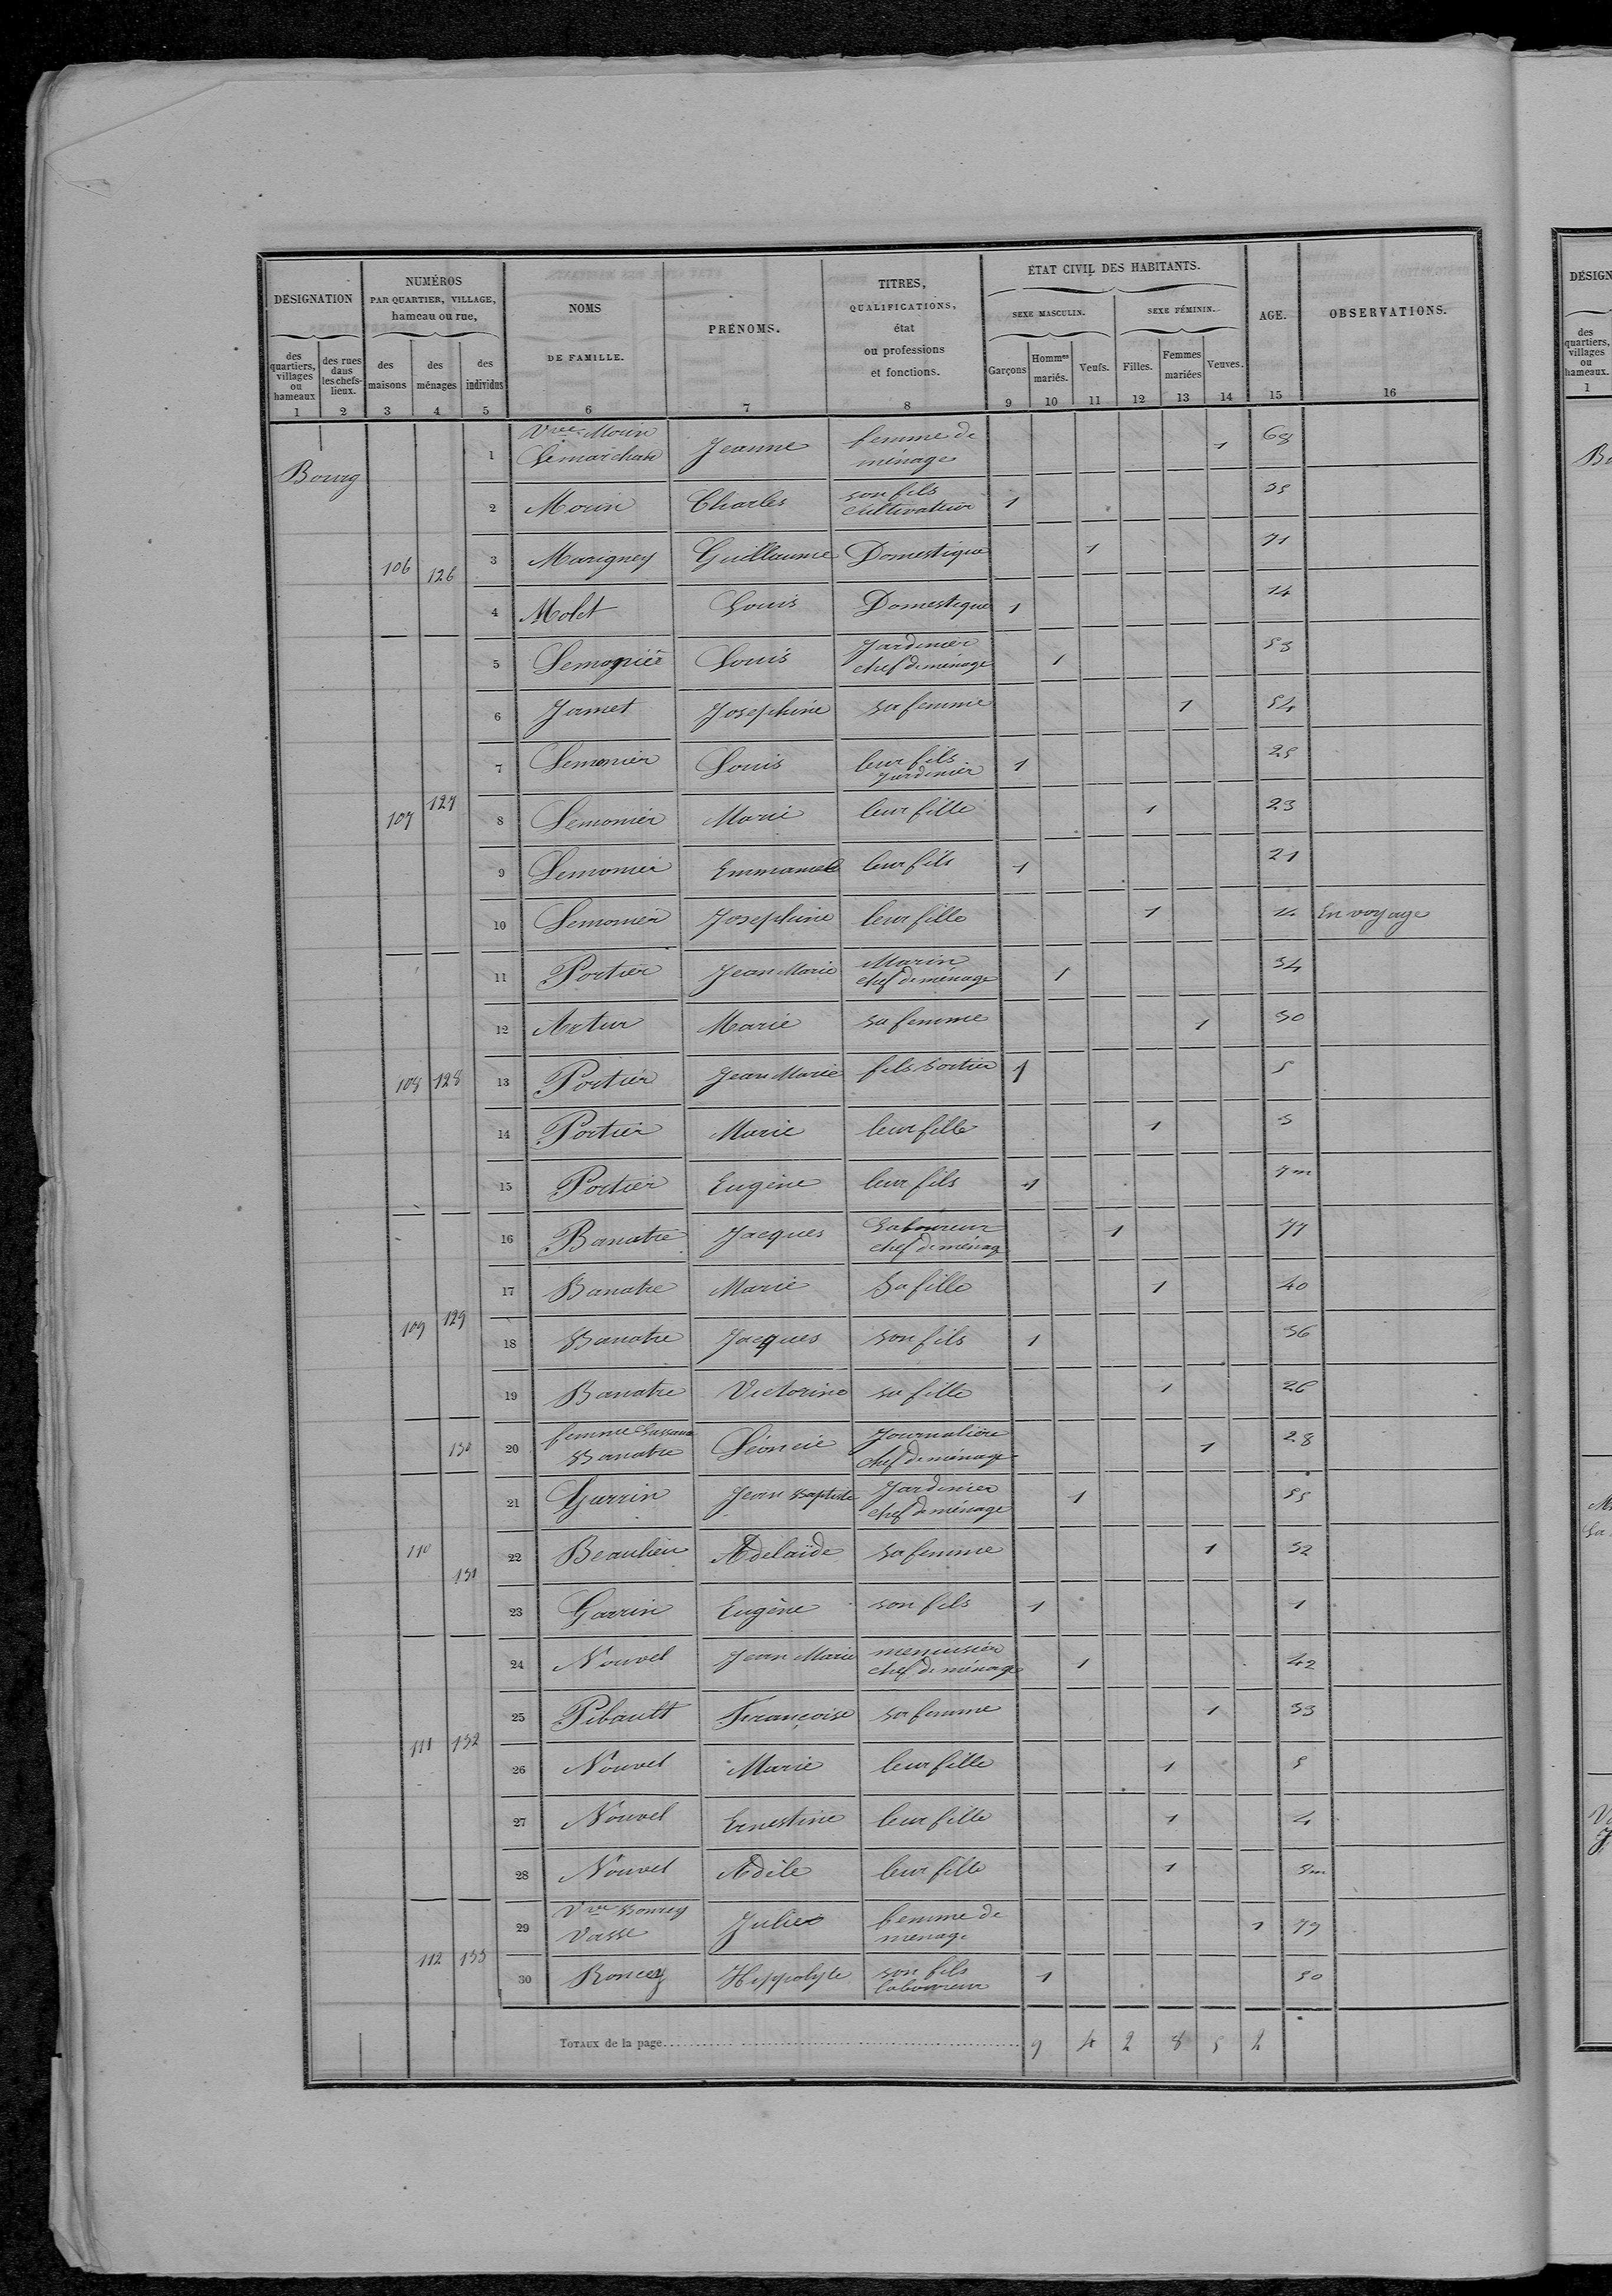 DÉSIGNATION
NUMÉROS
PAR QUARTIER, VILLAGE,
hameau ou rue,
NOMS
DE FAMILLE.
PRÉNOMS.
TITRES,
QUALIFICATIONS,
état
ou professions
et fonctions.
ÉTAT CIVIL DES HABITANTS.
SEXE MASCULIN.
SEXE FÉMININ.
AGE.
OBSERVATIONS.
des quartiers, villages ou hameaux
des rues dans les chefs-lieux.
des maisons
des ménages
des individus
Garçons
Hommes mariés.
Veufs.
Filles.
Femmes mariées
Veuves.
1 2 3 4 5 6 7 8 9 10 11 12 13 14 15 16
Bourg
1 Vve Morin Lemarchand Jeanne femme de ménage 1 68
2 Morin Charles son fils cultivateur 1 35
106 126
3 Marigney Guillaume Domestique 1 71
4 Molet Louis Domestique 1 14
5 Lemonier Louis Jardinier chef de ménage 1 53
6 Jamet Josephine sa femme 1 54
7 Lemonier Louis leur fils jardinier 1 25
107 127
8 Lemonier Marie leur fille 1 23
9 Lemonier Emmanuel leur fils 1 21
10 Lemonier Josephine leur fille 1 14 En voyage
11 Portier Jean Marie Marin chef de ménage 1 34
12 Artur Marie sa femme 1 30
108 128
13 Portier Jean Marie fils Portier 1 5
14 Portier Marie leur fille 1 3
15 Portier Eugène leur fils 1 7m
16 Banatre Jacques Laboureur chef de ménage 1 77
17 Banatre Marie Sa fille 1 40
109 129
18 Banatre Jacques son fils 1 36
19 Banatre Victorine sa fille 1 26
130
20 femme Banatre Léoncie Journalière chef de ménage 1 28
21 Garrin Jean Baptiste Jardinier chef de ménage 1 55
110
22 Beaulieu Adelaïde sa femme 1 52
131
23 Garrin Eugène son fils 1 1
24 Nouvel Jean Marie menuisier chef de ménage 1 42
25 Pibault Françoise sa femme 1 33
111 132
26 Nouvel Marie leur fille 1 5
27 Nouvel Ernestine leur fille 1 4
28 Nouvel Adèle leur fille 1 3m
29 Vve Roncey Vasse Julie femme de ménage 1 79
112 133
30 Roncey Hippolyte son fils laboureur 1 50
TOTAUX de la page 9 4 2 8 5 2
DÉSIGN
des quartiers, villages ou hameaux.
1